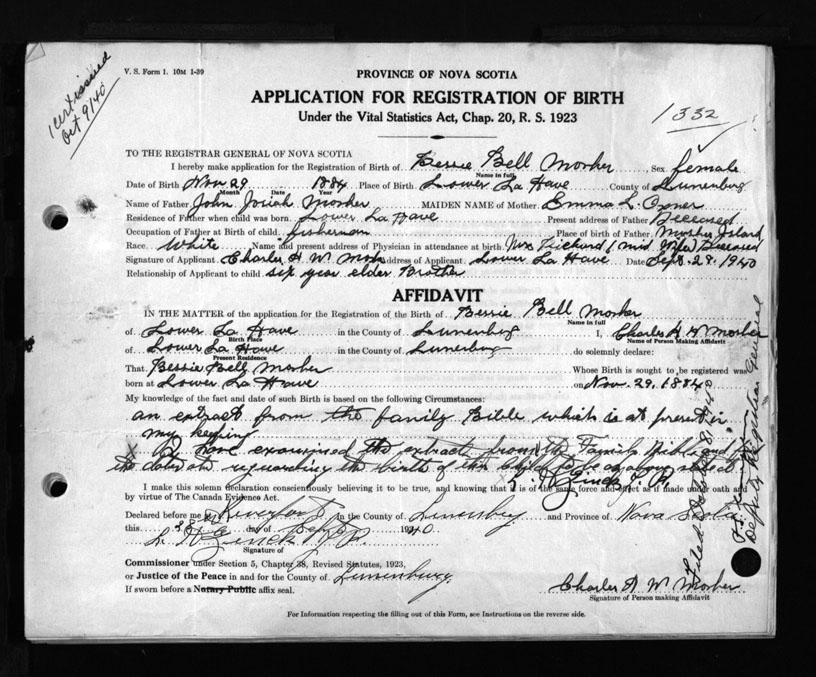 Cert issued
Oct 9/40
V. S. Form 1. 10M 1-39
PROVINCE OF NOVA SCOTIA
APPLICATION FOR REGISTRATION OF BIRTH
Under the Vital Statistics Act, Chap. 20, R. S. 1923
1332
TO THE REGISTRAR GENERAL OF NOVA SCOTIA
I hereby make application for the Registration of Birth of Bessie Bell Mosher Sex female
Name in full
Date of Birth Nov 29 1884 Place of Birth Lower La Have County of Lunenburg
Month Date Year
Name of Father John Josiah Mosher MAIDEN NAME of Mother Emma L.
Residence of Father when child was born Lower La Have Present address of Father Deceased
Occupation of Father at Birth of child fisherman Place of birth of Father Mosher Island
Race White Name and present address of Physician in attendance at birth Mrs Deceased
Signature of Applicant Charles H W Mosher Address of Applicant Lower La Have Date Sept. 28, 1940
Relationship of Applicant to child six year elder Brother
AFFIDAVIT
IN THE MATTER of the application for the Registration of the Birth of Bessie Bell Mosher
Name in full
of Lower La Have in the County of Lunenburg I, Charles H W Mosher
Birth Place
Name of Person Making Affidavit
of Lower La Have in the County of Lunenburg do solemnly declare:
Present Residence
That Bessie Bell Mosher Whose Birth is sought to be registered was
born at Lower La Have on Nov. 29, 1884
My knowledge of the fact and date of such Birth is based on the following Circumstances:
an extract from the family Bible which is at present in
my keeping
X I have examined the extracts from the Family Bible and
the dates regarding the birth of this child to be as above stated.
L. H. Zinck J. P.
I make this solemn declaration conscientiously believing it to be true, and knowing that it is of the same force and effect as if made under oath and
by virtue of The Canada Evidence Act.
Declared before me at Riverport in the County of Lunenburg and Province of Nova Scotia
this 28 day of Sept 1940
L. H. Zinck J. P.
Signature of
Commissioner under Section 5, Chapter 38, Revised Statutes, 1923,
or Justice of the Peace in and for the County of Lunenburg.
If sworn before a Notary Public affix seal.
Charles H W Mosher
Signature of Person making Affidavit
For Information respecting the filling out of this Form, see Instructions on the reverse side.
Filed October 8 1940
Deputy Registrar General